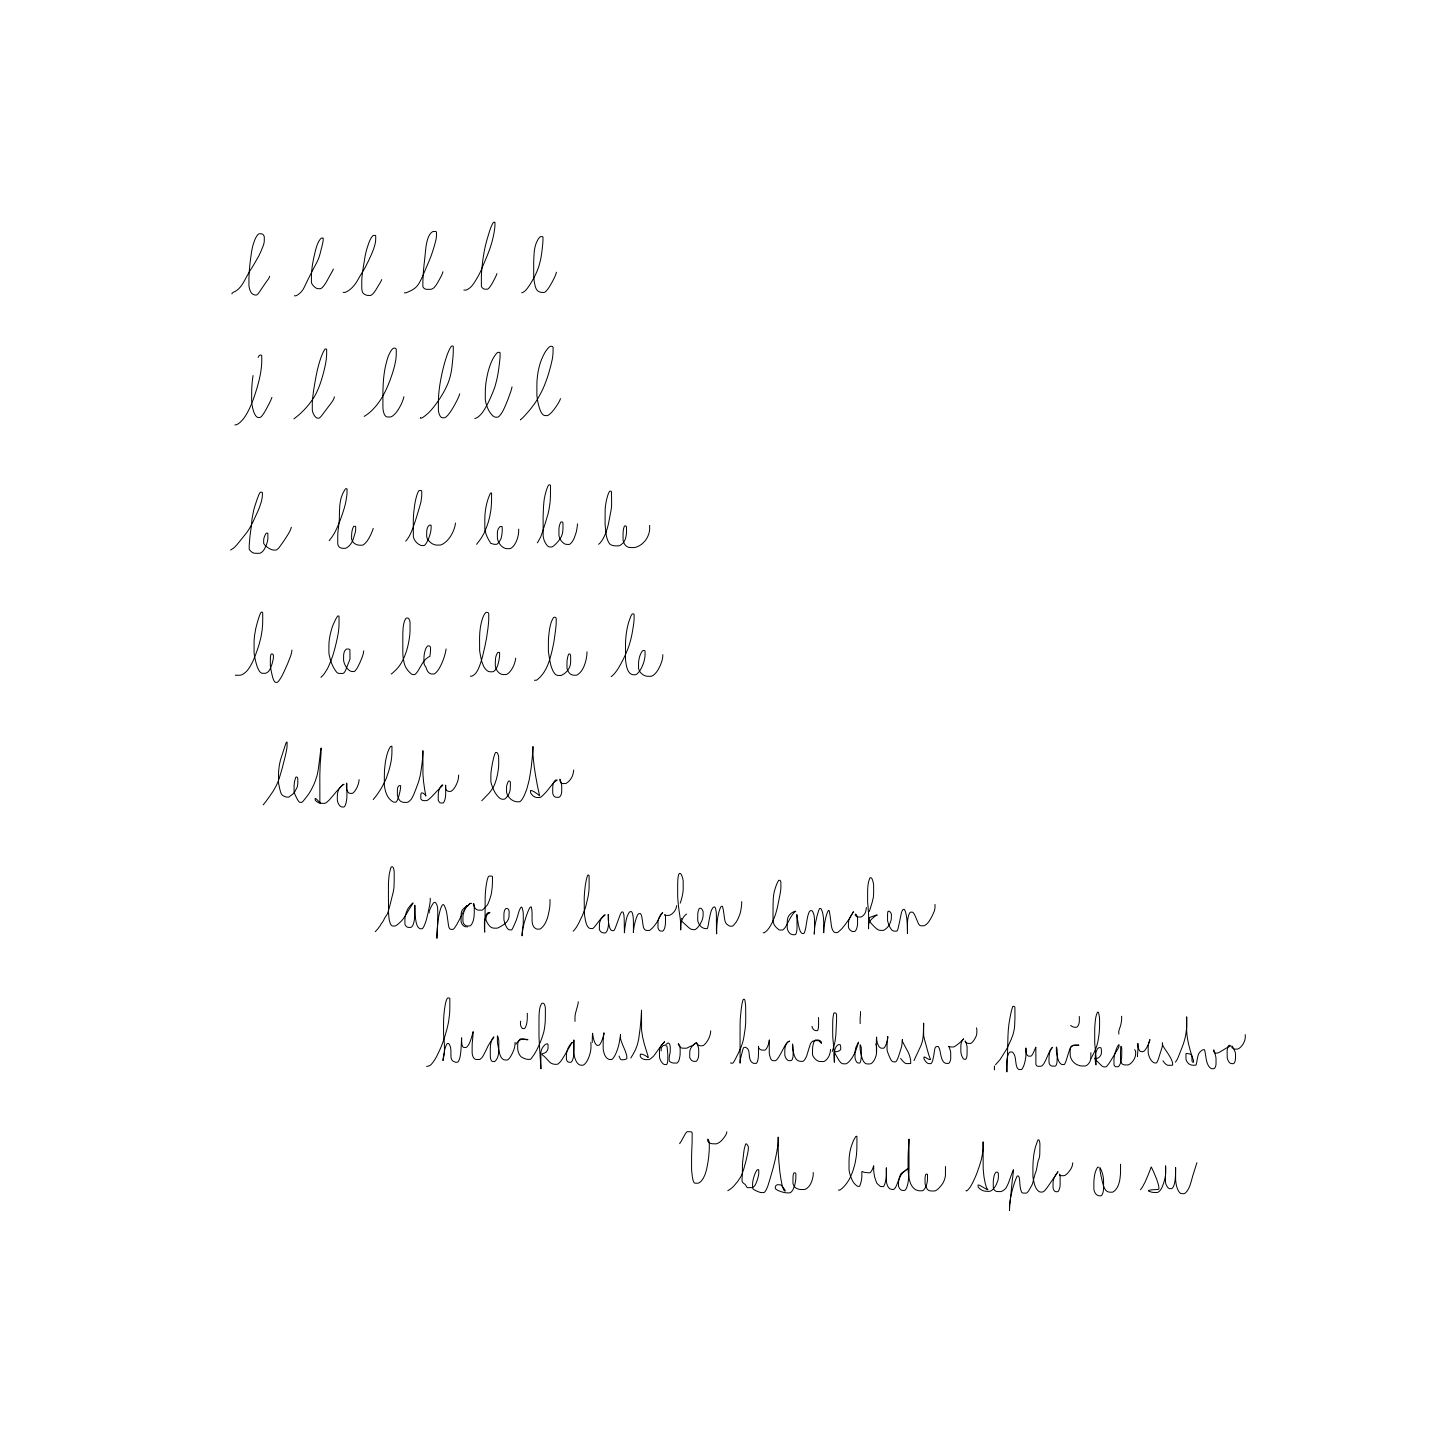 l l l l l l
l l l l l l
le le le le le le
le le le le le le
leto leto leto
lamoken lamoken lamoken
hračkárstvo hračkárstvo hračkárstvo
V lete bude teplo a su